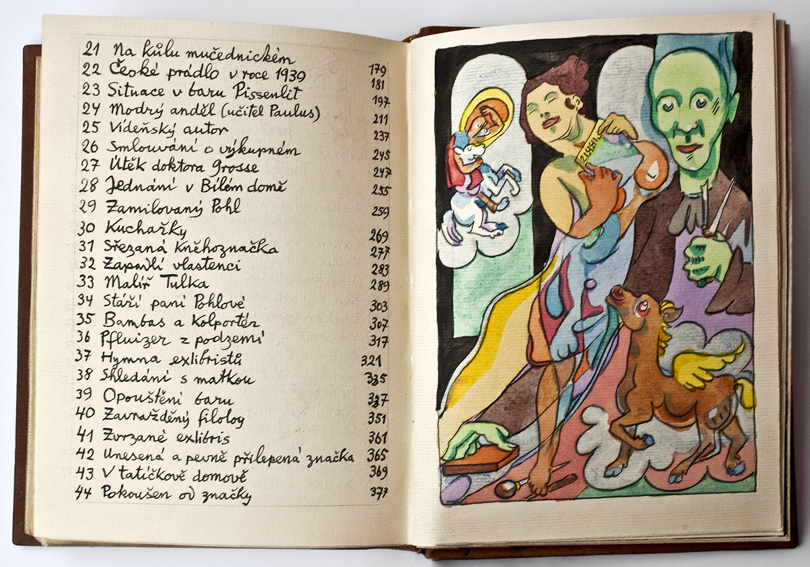 21 Na kůlu mučednickém
22 České prádlo v roce 1939 179
23 Situace v baru Pissenlit 181
24 Modrý anděl (učitel Paulus) 197
25 Vídeňský autor 211
26 Smlouvání o výkupném 237
27 Útěk doktora Grosse 245
28 Jednání v Bílém domě 247
29 Zamilovaný Pohl 255
30 Kuchařky 259
31 Sřezaná kněhoznačka 269
32 Zapadlí vlastenci 277
33 Malíř Tulka 283
34 Stáří paní Pohlové 289
35 Bambas a Kolportér 303
36 Pfluizer z podzemí 307
37 Hymna exlibristů 317
38 Shledání s matkou 321
39 Opouštění baru 335
40 Zavražděný filolog 337
41 Zvrzané exlibris 351
42 Unesená a pevně přilepená značka 361
43 V tatíčkově domově 365
44 Pokoušen od značky 369
377